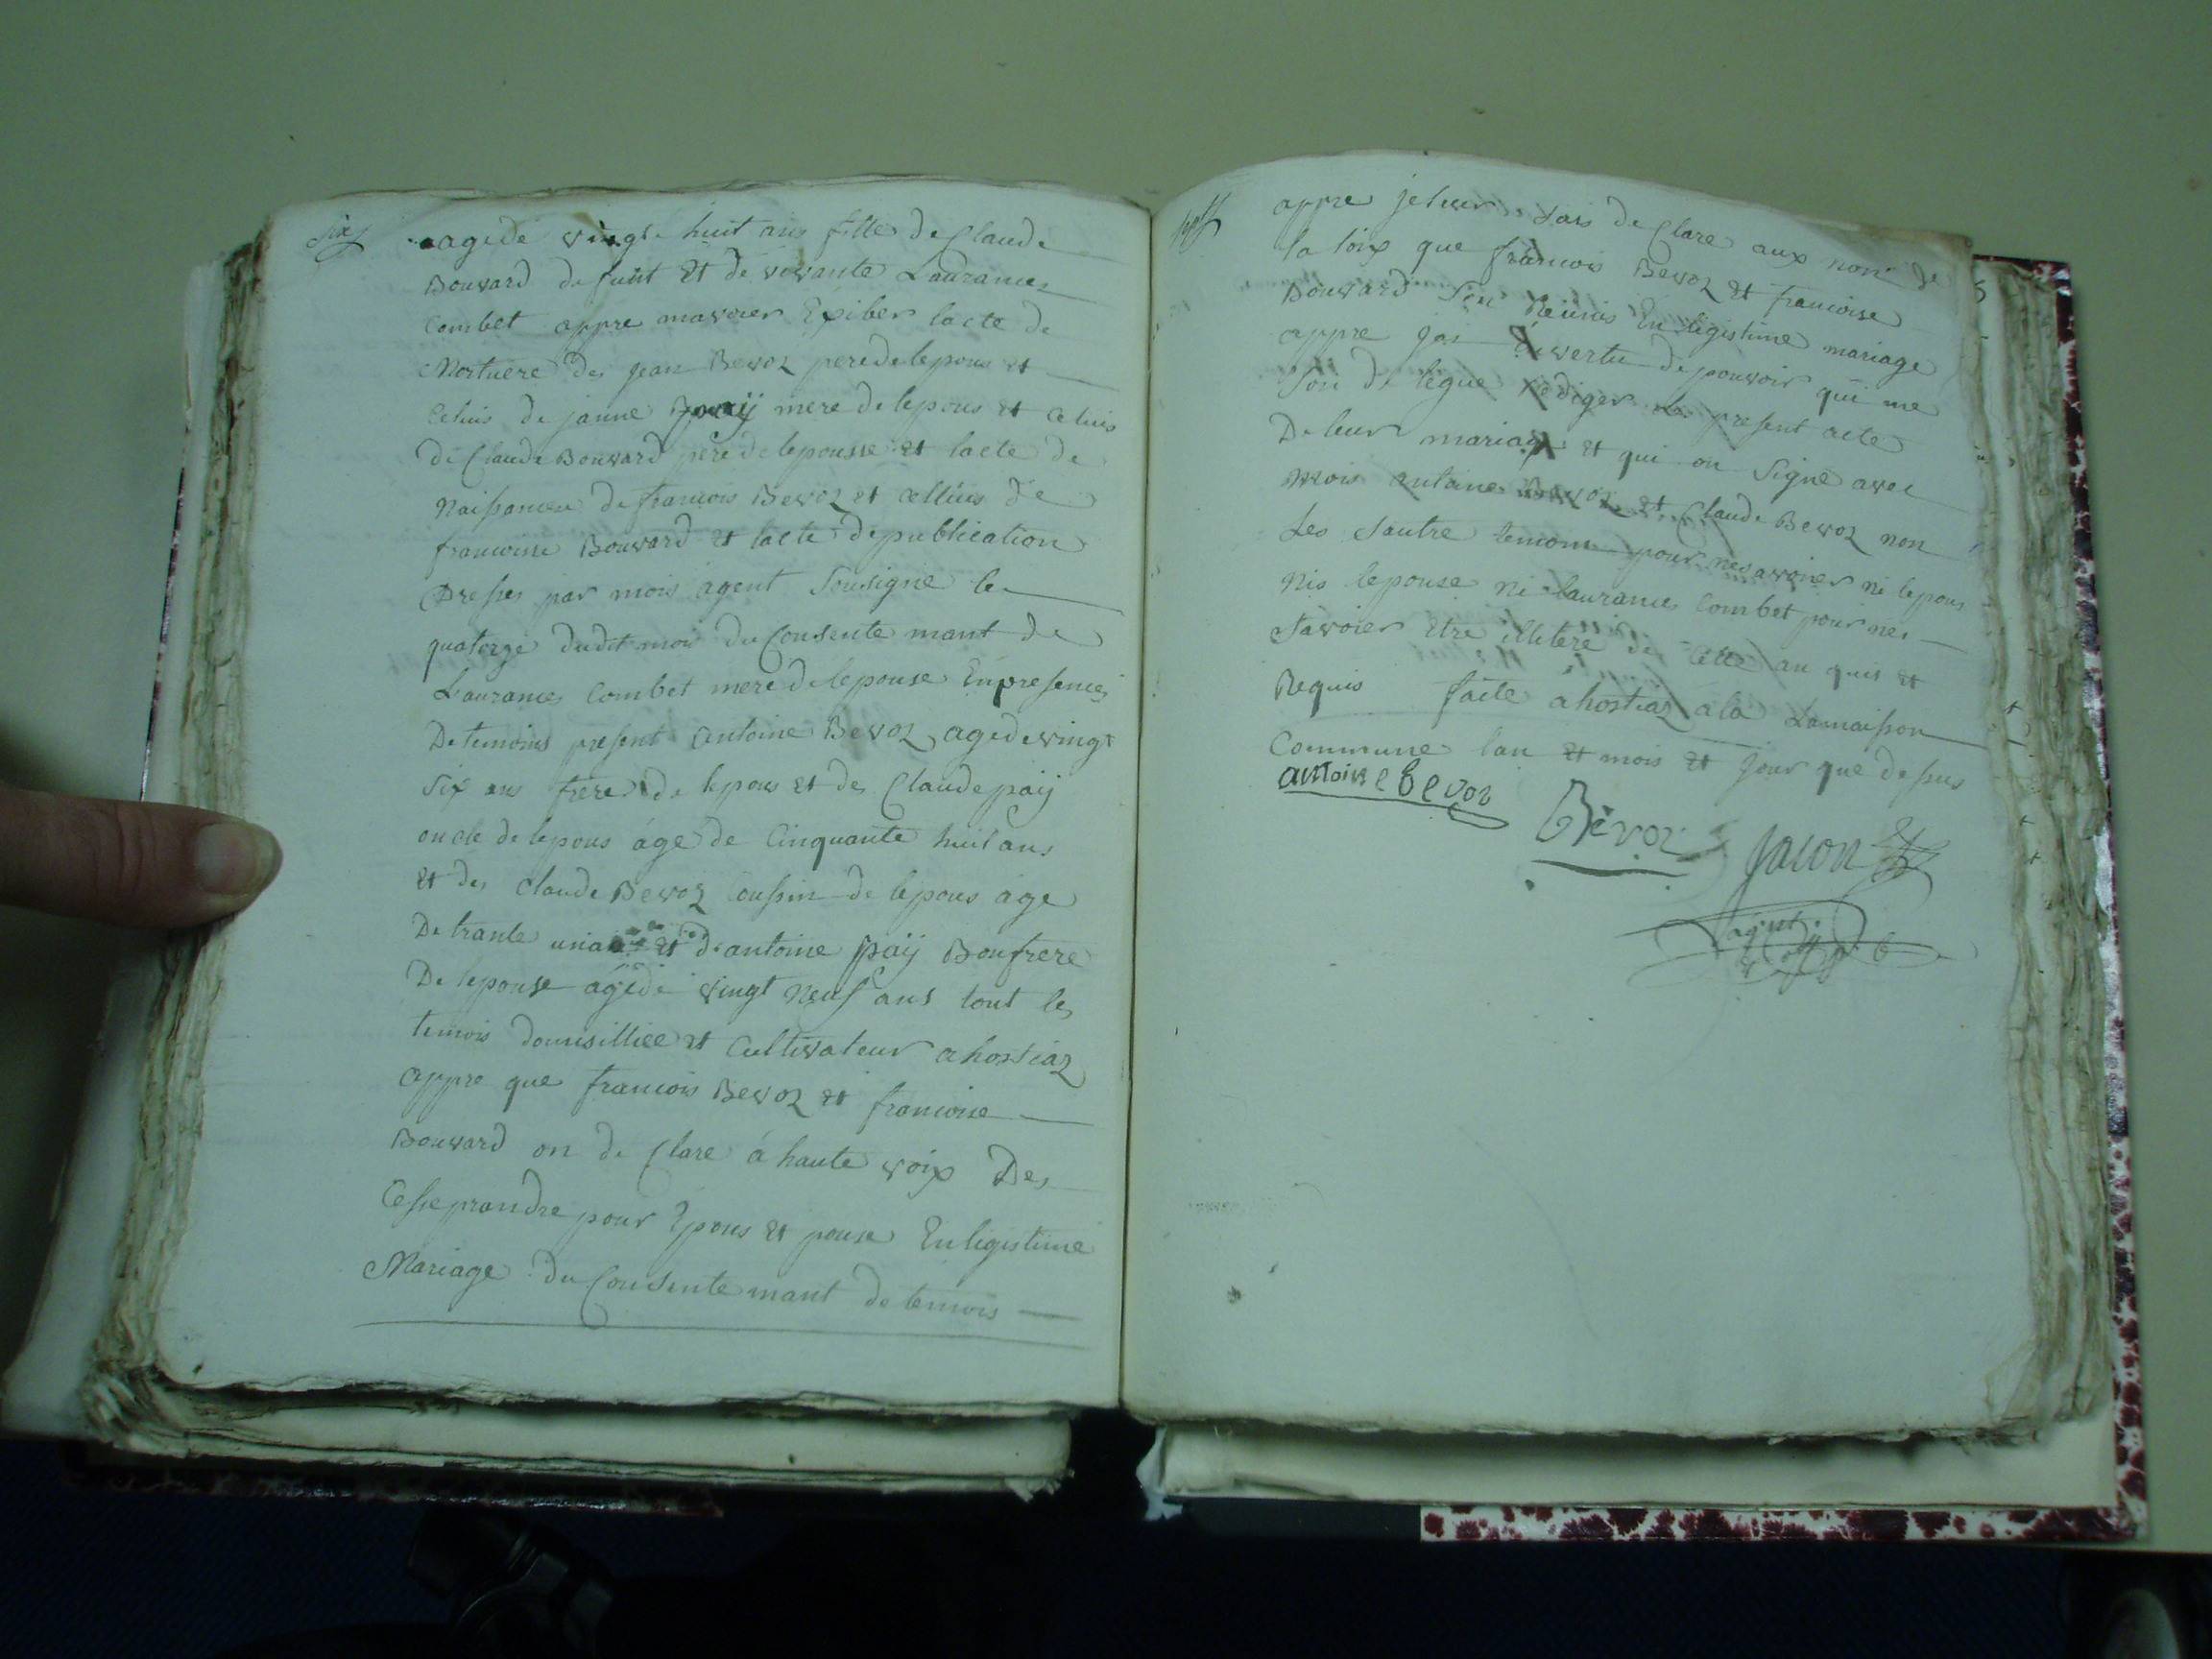 Six
agede vingt huit ans fille de Claude
Bouvard defunt Et de vivante Laurance
Combet appre mavoier Exiber lacte de
Mortuere des jean Bevoz pere de lepous et
Celuis de janne payÿ mere de lepous et Celuis
de Claude Bouvard pere de lepousse et lacte de
Naissance de francois Bevoz et celluis de
francoisse Bouvard et lacte de publication
Dresses par mois agent Sousigne le
quatorze dudit mois du Consente mant de
Laurance Combet mere de lepouse En presences
De temoins present antoine Bevoz agede vingt
Six ans frere de lepous et des Claude paÿ
oncle de lepous áge de Cinquante huit ans
Et des Claude Bevoz Coussin de lepous áge
De trante un et d'antoine paÿ Boufrere
De lepouse ágéde vingt Neuf ans tout les
temois domisilliee et Cultivateur a hostiaz
appre que francois Bevoz et francoise
Bouvard on de Clare á haute voix Des
Cesse prandre pour Epous et pouse En ligistime
Mariage du Consente mant de temois
sept
appre je leur de Clare aux non de
la loix que francois Bevoz et francoise
Bouvard Son Réünis En ligistime mariage
appre jai En vertu de pouvoir qui me
Son de legue rédiger le present acte
De leur mariage et qui on Signe avec
mois antoine Bevoz et Claude Bevoz non
Les Sautre temoins pour ne savoier ni lepous
Nis lepouse ni laurance Combet pour nes
Savoier Etre illitere de cette an quis et
Requis faite á hostiaz á la Lamaison
Commune lan et mois et jour que dessus
antoine bevoz
Bévoz
Jacon
agent